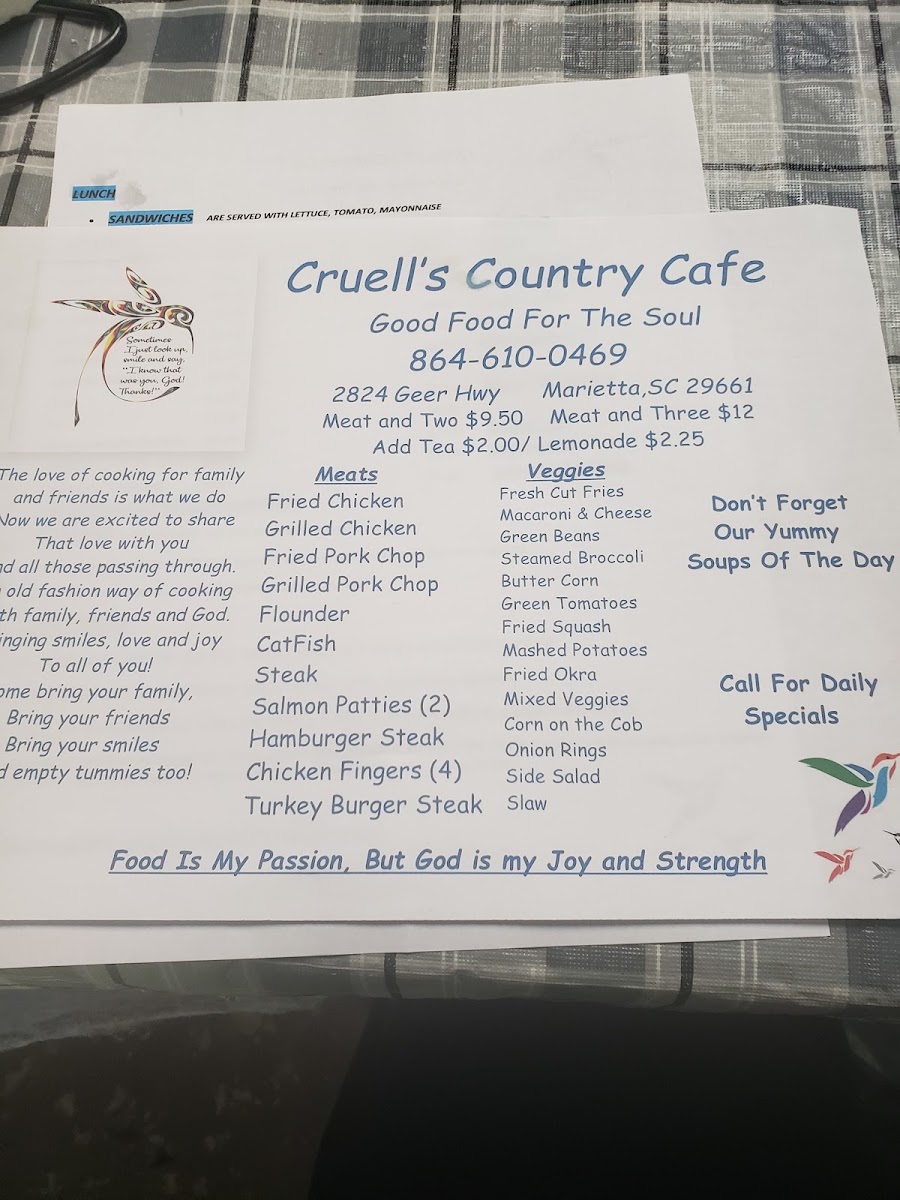 LUNCH
• SANDWICHES ARE SERVED WITH LETTUCE, TOMATO, MAYONNAISE
Cruell's Country Cafe
Good Food For The Soul
864-610-0469
2824 Geer Hwy Marietta,SC 29661
Meat and Two $9.50 Meat and Three $12
Add Tea $2.00/ Lemonade $2.25
Sometimes
I just look up,
smile and say,
"I know that
was you, God!
Thanks!"
The love of cooking for family
and friends is what we do
Now we are excited to share
That love with you
all those passing through.
old fashion way of cooking
family, friends and God.
smiles, love and joy
To all of you!
bring your family,
Bring your friends
Bring your smiles
empty tummies too!
Meats
Fried Chicken
Grilled Chicken
Fried Pork Chop
Grilled Pork Chop
Flounder
CatFish
Steak
Salmon Patties (2)
Hamburger Steak
Chicken Fingers (4)
Turkey Burger Steak
Veggies
Fresh Cut Fries
Macaroni & Cheese
Green Beans
Steamed Broccoli
Butter Corn
Green Tomatoes
Fried Squash
Mashed Potatoes
Fried Okra
Mixed Veggies
Corn on the Cob
Onion Rings
Side Salad
Slaw
Don't Forget
Our Yummy
Soups Of The Day
Call For Daily
Specials
Food Is My Passion, But God is my Joy and Strength